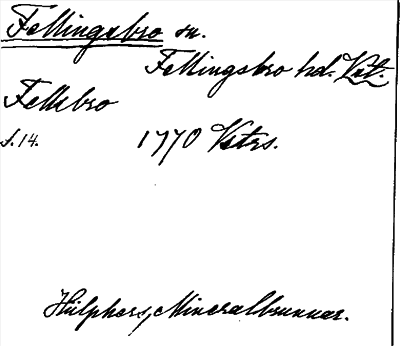 Fellingsbro sn.
Fellingsbro hd. Vstm.
Fellsbro
s. 14. 1770 Vstrs.
Hülphers, Mineralbrunnar.